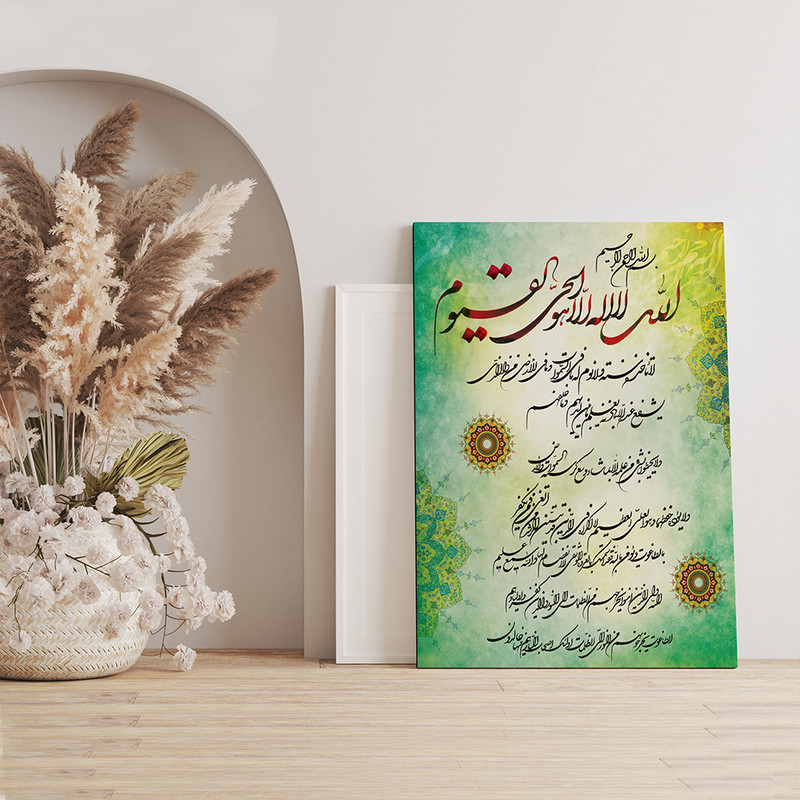 بسم الله الرحمن الرحیم
الله لا اله الا هو الحی القیوم
لا تأخذه سنة و لا نوم له ما فی السموات و ما فی الارض من ذا الذی
یشفع عنده الا باذنه یعلم ما بین ایدیهم و ما خلفهم
و لا یحیطون بشی من علمه الا بما شاء وسع کرسیه السموات و الارض
و لا یؤده حفظهما و هو العلی العظیم لا اکراه فی الدین قد تبین الرشد من الغی فمن یکفر
بالطاغوت و یؤمن بالله فقد استمسک بالعروة الوثقی لا انفصام لها و الله سمیع علیم
الله ولی الذین آمنوا یخرجهم من الظلمات الی النور و الذین کفروا اولیاؤهم
الطاغوت یخرجونهم من النور الی الظلمات اولئک اصحاب النار هم فیها خالدون